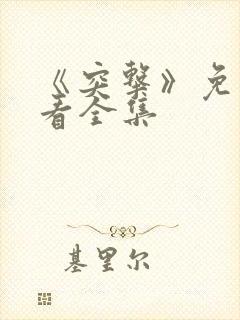 《突击》免
看全集
基里尔